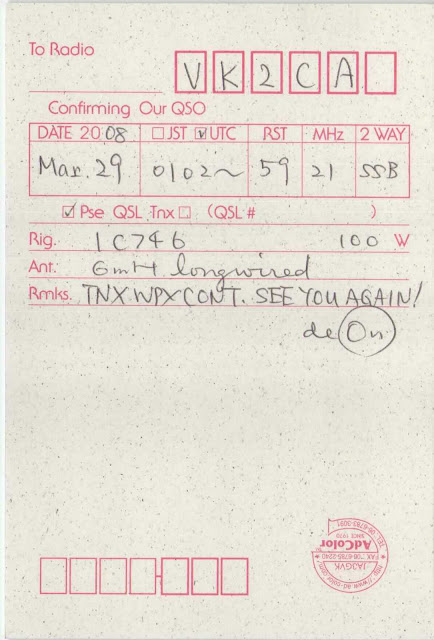 To Radio
VK2CA
Confirming Our QSO
DATE 2008 □JST ☑UTC RST MHz 2 WAY
Mar. 29 0102~ 59 21 SSB
☑Pse QSL Tnx□ (QSL # )
Rig. IC746 100 W
Ant. 6mH longwired
Rmks. TNX WPX CONT. SEE YOU AGAIN!
de On
TEL 06-6783-3091
SINCE 1970
AdColor
FAX *06-6785-2240
JA3GVK